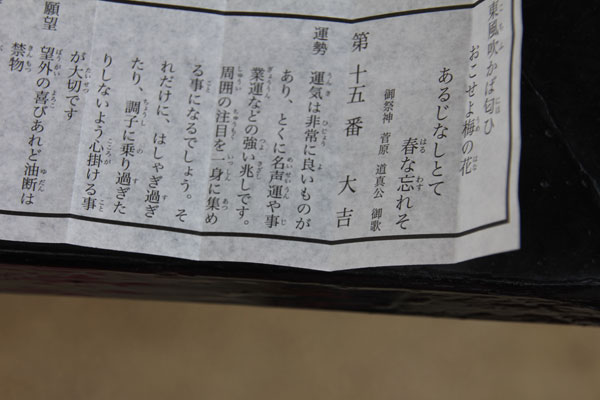 東風吹かば匂ひ
おこせよ梅の花
あるじなしとて
春な忘れそ
御祭神 菅原 道真公 御歌
第十五番 大吉
運勢 運気は非常に良いものが
あり、とくに名声運や事
業運などの強い兆しです。
周囲の注目を一身に集め
る事になるでしょう。そ
れだけに、はしゃぎ過ぎ
たり、調子に乗り過ぎた
りしないよう心掛ける事
が大切です
願望 望外の喜びあれど油断は
禁物